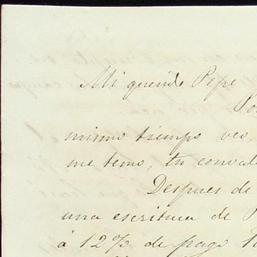 Mi querido Pepe
mismo tiempo veo,
me temo, tu conval
Despues de
una escritura de P
á 12% de pago